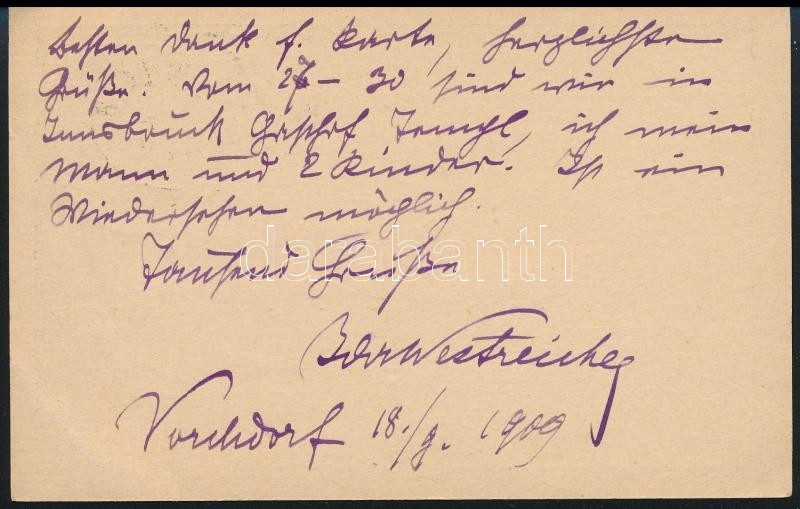 Besten Dank f. Karte, herzlichste
Grüße. Vom 27 – 30 sind wir in
Innsbruck Gasthof Templ, ich mein
Mann und 2 Kinder. Ist ein
Wiedersehen möglich.
Tausend Grüße
Ida Westreicher
Vorchdorf 18./9. 1909
darabanth